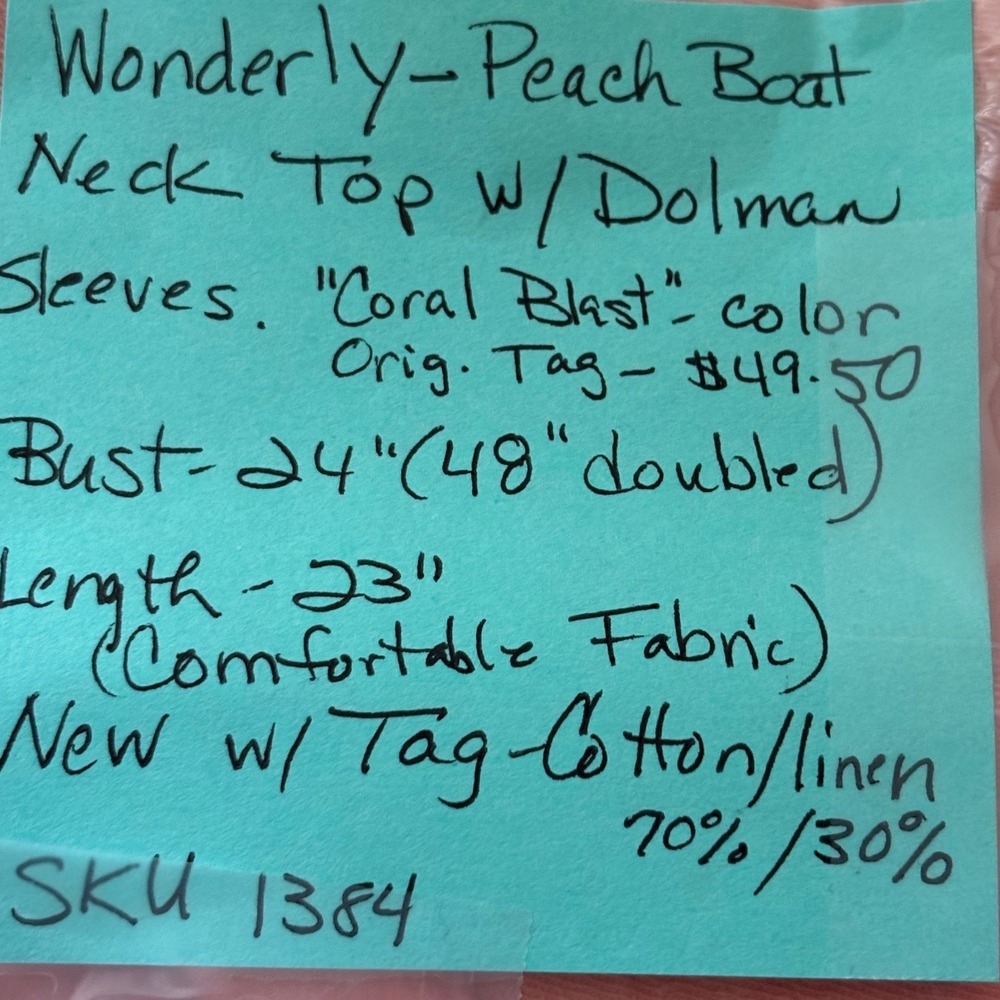 Wonderly - Peach Boat
Neck Top w/ Dolman
Sleeves. "Coral Blast" - color
Orig. Tag - $49.50
Bust - 24" (48" doubled)
Length - 23"
(Comfortable Fabric)
New w/ Tag - Cotton/linen
70% / 30%
SKU 1384